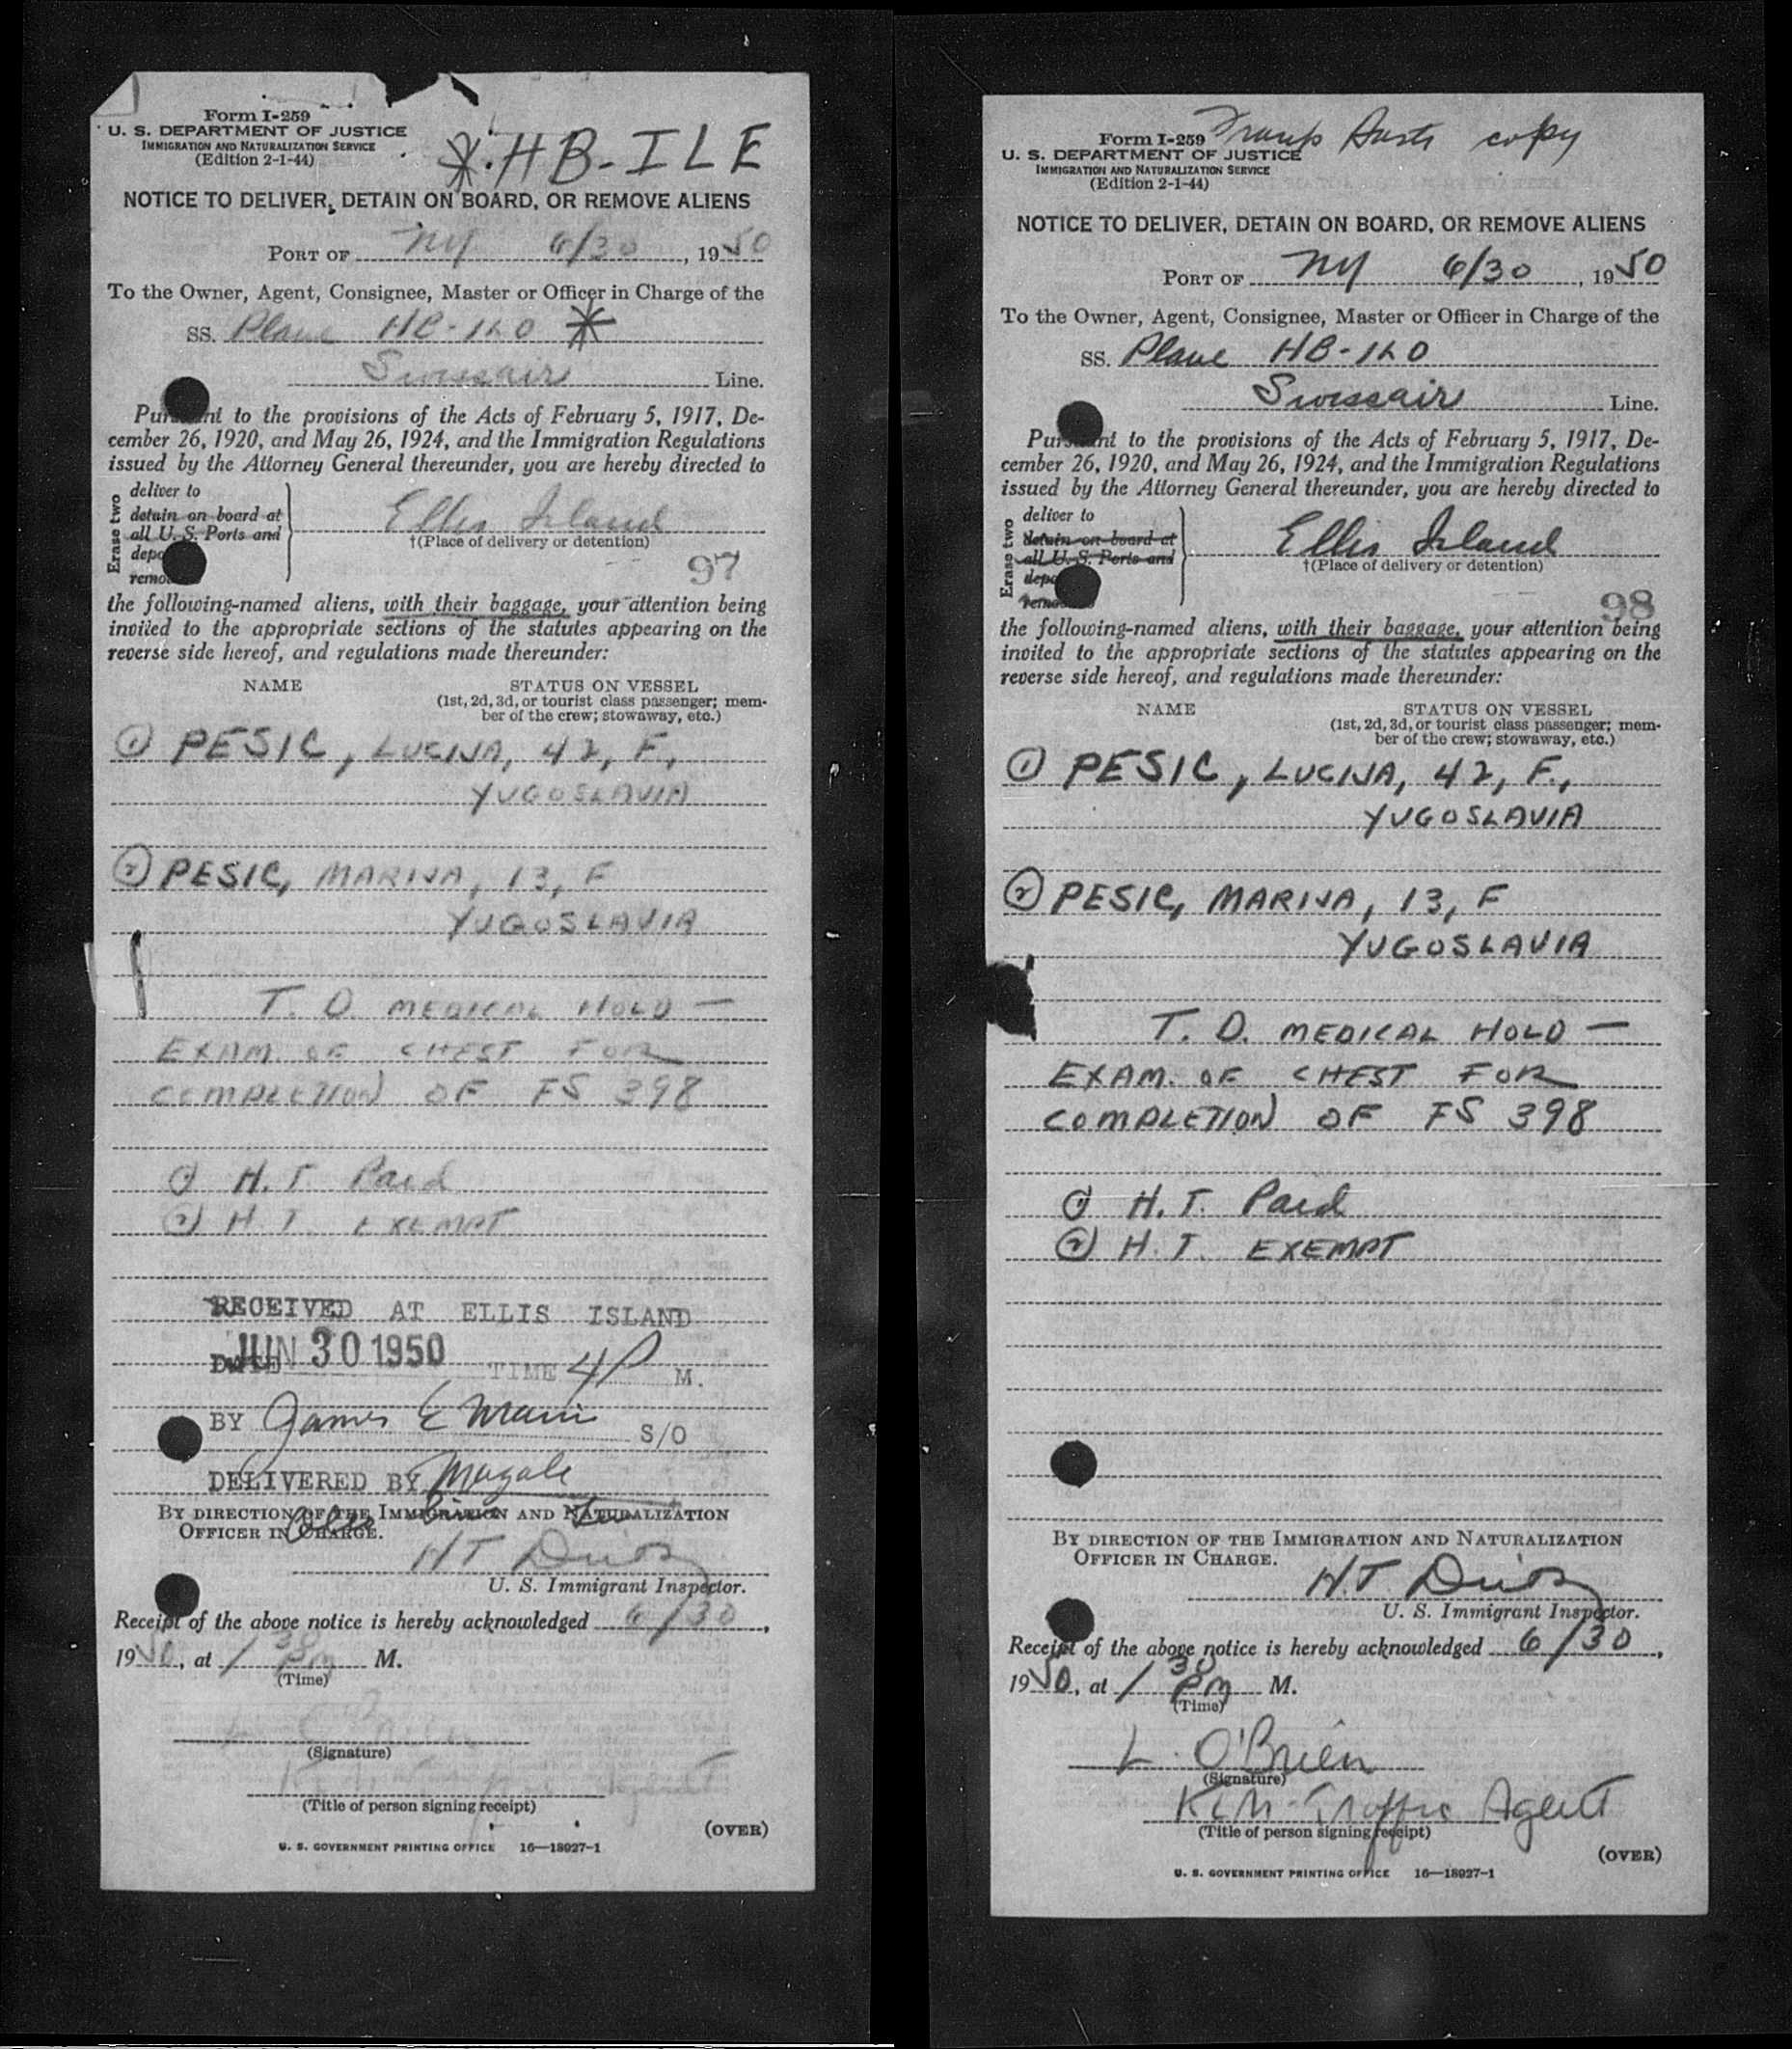 Form I-259
U. S. DEPARTMENT OF JUSTICE
IMMIGRATION AND NATURALIZATION SERVICE
(Edition 2-1-44)
*.HB-ILE
NOTICE TO DELIVER, DETAIN ON BOARD, OR REMOVE ALIENS
PORT OF NY 6/30, 1950
To the Owner, Agent, Consignee, Master or Officer in Charge of the
SS. Plane HB-ILO *
Swissair Line.
Pursuant to the provisions of the Acts of February 5, 1917, De-
cember 26, 1920, and May 26, 1924, and the Immigration Regulations
issued by the Attorney General thereunder, you are hereby directed to
Erase two
deliver to
detain on board at
all U. S. Ports and
depo
remo
Ellis Island
†(Place of delivery or detention)
97
the following-named aliens, with their baggage, your attention being
invited to the appropriate sections of the statutes appearing on the
reverse side hereof, and regulations made thereunder:
NAME STATUS ON VESSEL
(1st, 2d, 3d, or tourist class passenger; mem-
ber of the crew; stowaway, etc.)
① PESIC, LUCIJA, 42, F,
YUGOSLAVIA
② PESIC, MARIJA, 13, F
YUGOSLAVIA
T. D. MEDICAL HOLD —
EXAM. OF CHEST FOR
COMPLETION OF FS 398
① H. T. Paid
② H. T. EXEMPT
RECEIVED AT ELLIS ISLAND
DATE JUN 30 1950 TIME 4P M.
BY James E S/O
DELIVERED BY
BY DIRECTION OF THE IMMIGRATION AND NATURALIZATION
OFFICER IN CHARGE.
H.T.
U. S. Immigrant Inspector.
Receipt of the above notice is hereby acknowledged 6/30,
1950, at 1 30 PM M.
(Time)
(Signature)
(Title of person signing receipt)
(OVER)
U. S. GOVERNMENT PRINTING OFFICE 16—18027-1
Form I-259 copy
U. S. DEPARTMENT OF JUSTICE
IMMIGRATION AND NATURALIZATION SERVICE
(Edition 2-1-44)
NOTICE TO DELIVER, DETAIN ON BOARD, OR REMOVE ALIENS
PORT OF NY 6/30, 1950
To the Owner, Agent, Consignee, Master or Officer in Charge of the
SS. Plane HB-ILO
Swissair Line.
Pursuant to the provisions of the Acts of February 5, 1917, De-
cember 26, 1920, and May 26, 1924, and the Immigration Regulations
issued by the Attorney General thereunder, you are hereby directed to
Erase two
deliver to
detain on board at
all U. S. Ports and
depo
remo
Ellis Island
†(Place of delivery or detention)
98
the following-named aliens, with their baggage, your attention being
invited to the appropriate sections of the statutes appearing on the
reverse side hereof, and regulations made thereunder:
NAME STATUS ON VESSEL
(1st, 2d, 3d, or tourist class passenger; mem-
ber of the crew; stowaway, etc.)
① PESIC, LUCIJA, 42, F.,
YUGOSLAVIA
② PESIC, MARIJA, 13, F
YUGOSLAVIA
T. D. MEDICAL HOLD —
EXAM. OF CHEST FOR
COMPLETION OF FS 398
① H. T. Paid
② H. T. EXEMPT
BY DIRECTION OF THE IMMIGRATION AND NATURALIZATION
OFFICER IN CHARGE.
H.T.
U. S. Immigrant Inspector.
Receipt of the above notice is hereby acknowledged 6/30,
1950, at 1 30 PM M.
(Time)
L. O'Brien
(Signature)
KLM-Traffic Agent
(Title of person signing receipt)
(OVER)
U. S. GOVERNMENT PRINTING OFFICE 16—18027-1